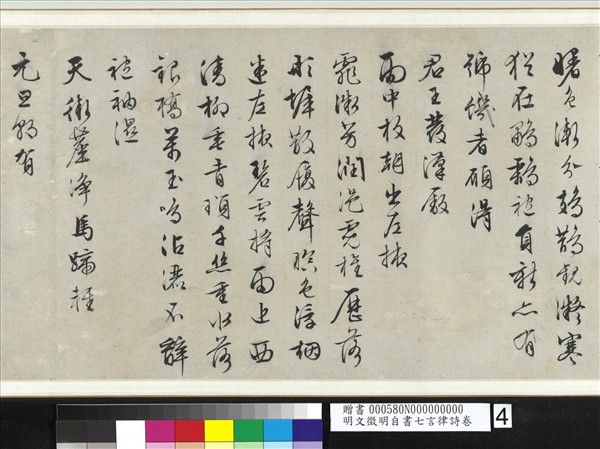 曙色漸分鳷鵲觀凝寒
猶在鷫鸘袍自慙亦有
號饑者願得
君王發漢廒
雨中放朝出左掖
霏微芳潤浥霓旌歷落
彤墀散履聲暝色浮烟
迷左掖碧雲將雨上西
清柳垂青瑣千絲重水落
銀橋萬玉鳴沾灑不辭
袍袖濕
天街塵淨馬蹄輕
元旦朝賀
贈書 000580N000000000
明文徵明自書七言律詩卷
4